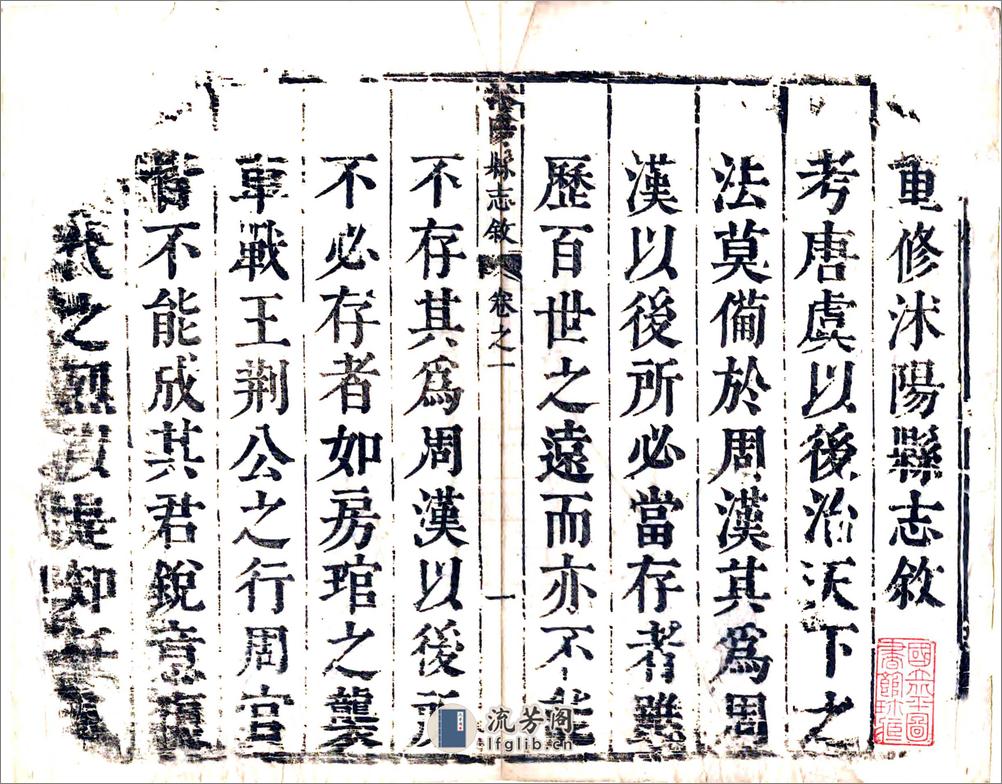 重修沭陽縣志敘
考唐虞以後治天下之
法莫備於周漢其爲周
漢以後所必當存者雖
歷百世之遠而亦不能
沭陽縣志敘 卷之一 一
不存其爲周漢以後所
不必存者如房琯之襲
車戰王荆公之行周官
皆不能成其君銳意
代之 以是知
國立北平圖書館珍藏
流芳阁
lfglib.cn